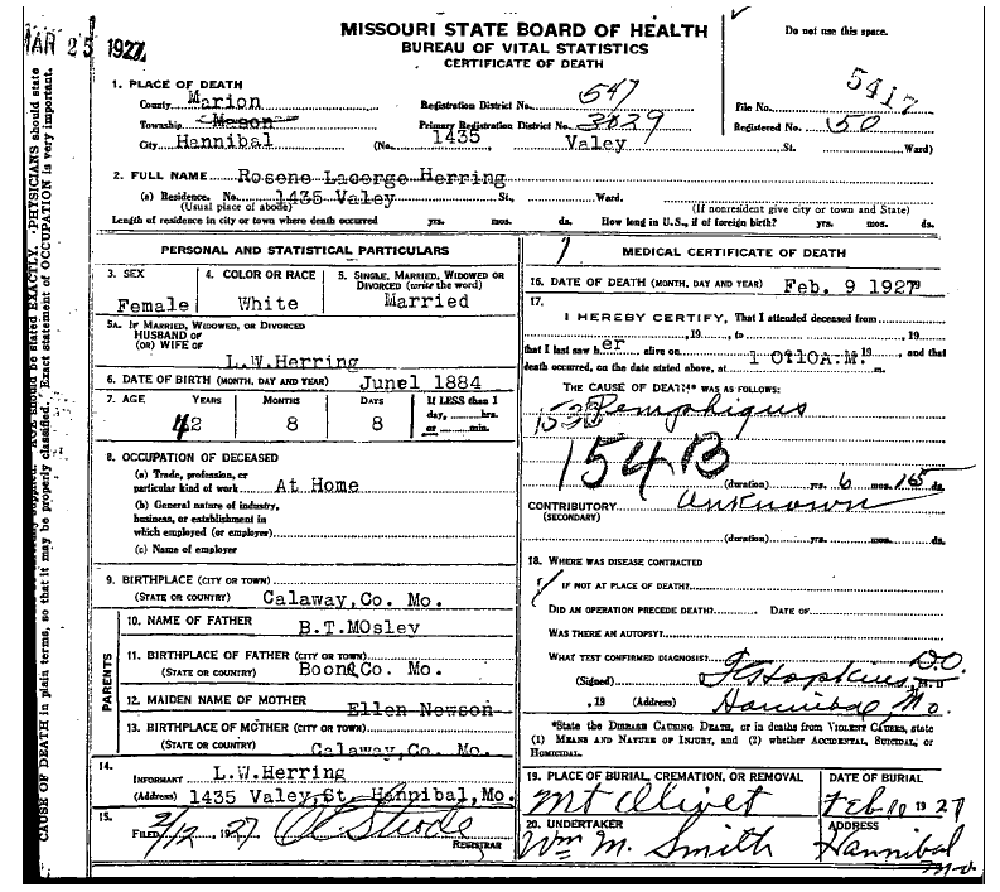 MAR 25 1927
MISSOURI STATE BOARD OF HEALTH
BUREAU OF VITAL STATISTICS
CERTIFICATE OF DEATH
Do not use this space.
5417
1. PLACE OF DEATH
County Marion Registration District No. 547 File No.
Township Mason Primary Registration District No. 3029 Registered No. 50
City Hannibal (No. 1435 Valey St. Ward)
2. FULL NAME Rosene Lacorge Herring
(a) Residence. No. 1435 Valey St., Ward.
(Usual place of abode) (If nonresident give city or town and State)
Length of residence in city or town where death occurred yrs. mos. ds. How long in U.S., if of foreign birth? yrs. mos. ds.
PERSONAL AND STATISTICAL PARTICULARS
3. SEX Female
4. COLOR OR RACE White
5. SINGLE, MARRIED, WIDOWED OR DIVORCED (write the word) Married
5A. IF MARRIED, WIDOWED, OR DIVORCED
HUSBAND OF
(OR) WIFE OF L.W.Herring
6. DATE OF BIRTH (MONTH, DAY AND YEAR) June1 1884
7. AGE YEARS MONTHS DAYS If LESS than 1
day, hrs.
42 8 8 or min.
8. OCCUPATION OF DECEASED
(a) Trade, profession, or
particular kind of work At Home
(b) General nature of industry,
business, or establishment in
which employed (or employer)
(c) Name of employer
9. BIRTHPLACE (CITY OR TOWN)
(STATE OR COUNTRY) Calaway,Co. Mo.
PARENTS
10. NAME OF FATHER B.T.MOsley
11. BIRTHPLACE OF FATHER (CITY OR TOWN)
(STATE OR COUNTRY) Boone Co. Mo.
12. MAIDEN NAME OF MOTHER Ellen Newson
13. BIRTHPLACE OF MOTHER (CITY OR TOWN)
(STATE OR COUNTRY) Calaway,Co. Mo.
14. INFORMANT L.W.Herring
(Address) 1435 Valey,St. Hannibal,Mo.
15.
FILED 2/12, 1927 REGISTRAR
MEDICAL CERTIFICATE OF DEATH
16. DATE OF DEATH (MONTH, DAY AND YEAR) Feb. 9 1927
17.
I HEREBY CERTIFY, That I attended deceased from
, 19 , to , 19
that I last saw her alive on 19 , and that
death occurred, on the date stated above, at 1 0:10A.M. m.
THE CAUSE OF DEATH* WAS AS FOLLOWS:
Pemphigus
154B
(duration) yrs. 6 mos. 15 ds.
CONTRIBUTORY Unknown
(SECONDARY)
(duration) yrs. mos. ds.
18. WHERE WAS DISEASE CONTRACTED
IF NOT AT PLACE OF DEATH?
DID AN OPERATION PRECEDE DEATH? DATE OF
WAS THERE AN AUTOPSY?
WHAT TEST CONFIRMED DIAGNOSIS?
(Signed) Hopkins D.O.
, 19 (Address) Hannibal, Mo.
*State the DISEASE CAUSING DEATH, or in deaths from VIOLENT CAUSES, state
(1) MEANS AND NATURE OF INJURY, and (2) whether ACCIDENTAL, SUICIDAL, or
HOMICIDAL.
19. PLACE OF BURIAL, CREMATION, OR REMOVAL DATE OF BURIAL
Mt Olivet Feb 10 1927
20. UNDERTAKER ADDRESS
Wm M. Smith Hannibal
Mo.
AGE should be stated EXACTLY. PHYSICIANS should state
CAUSE OF DEATH in plain terms, so that it may be properly classified. Exact statement of OCCUPATION is very important.